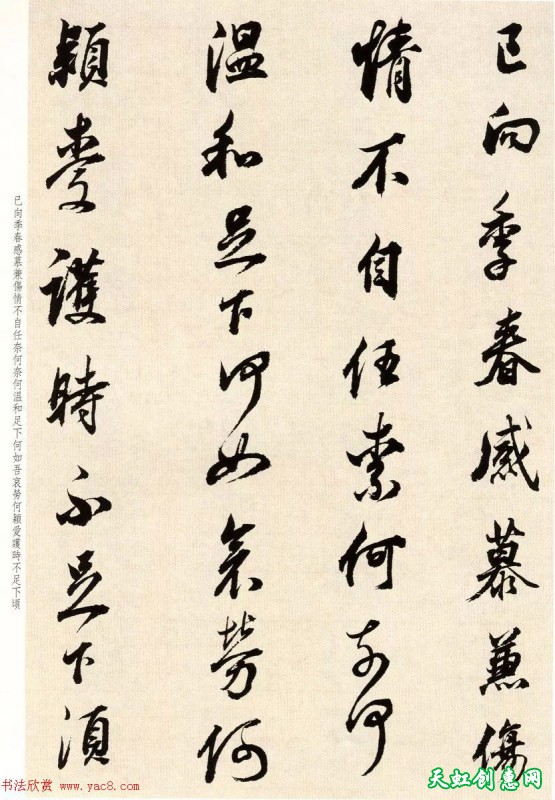 已向季春感慕兼傷
情不自任奈何奈何
溫和足下何如哀勞何
穎愛護時不足下須
已向季春感慕兼傷情不自任奈何奈何溫和足下何如吾哀勞何穎愛護時不足下頃
书法欣赏 www.yac8.com
天虹创意网